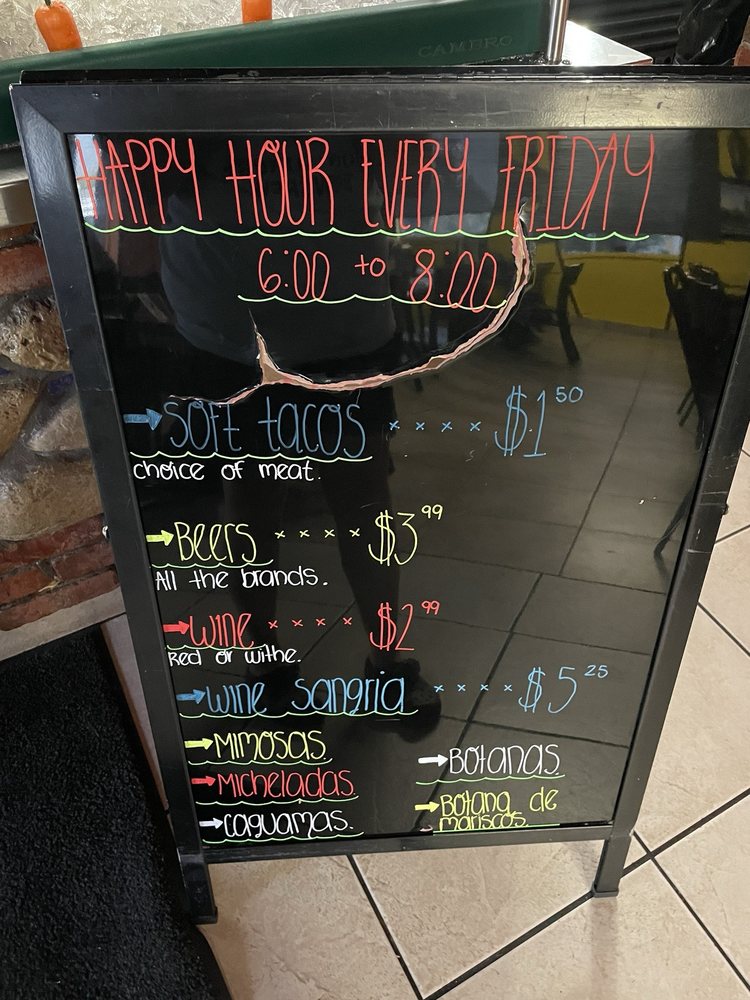 CAMBRO
HAPPY HOUR EVERY FRIDAY
6:00 to 8:00
SOFT tacos x x x x $1 50
choice of meat.
BEERS x x x x $3 99
All the brands.
WINE x x x x $2 99
Red or withe.
WINE sangria x x x x $5 25
MIMOSAS
MICHELADAS
CAGUAMAS.
BOTANAS
BOTANA de
mariscos.